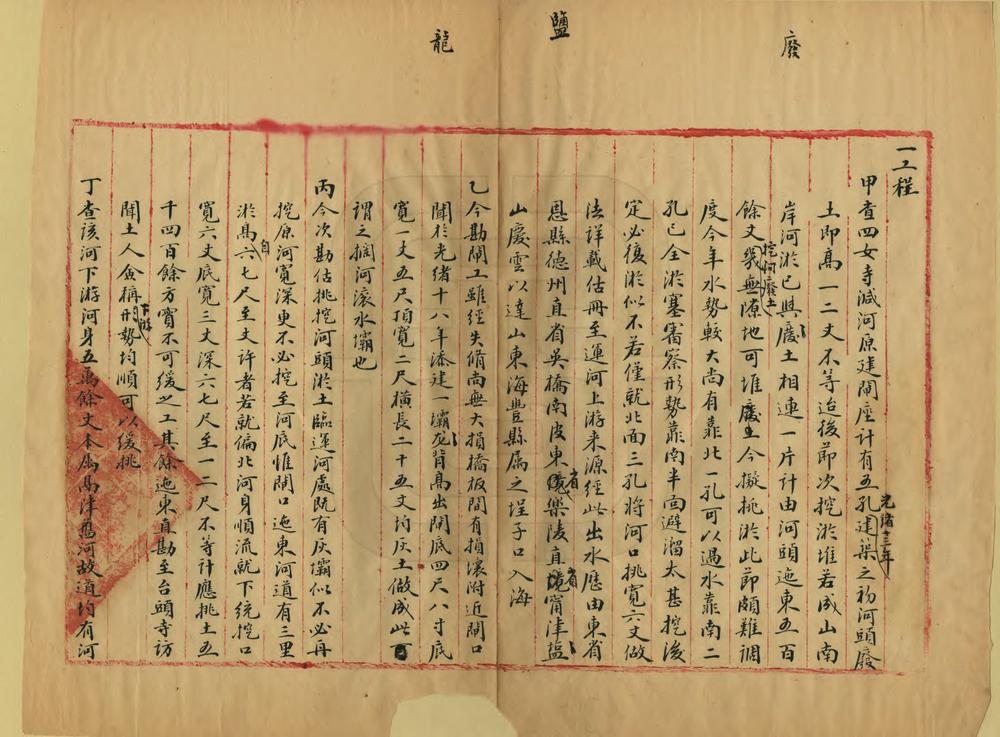 廢
鹽
龍
一工程
甲查四女寺減河原建閘座計有五孔建築之初河頭廢
光緒十三年
土即高一二丈不等迨後節次挖淤堆若成山南
岸河淤已與廢土相連一片計由河頭迤東五百
餘丈幾無隙地可堆廢土今擬挑淤此節頗難調
挖河廢土
度今年水勢較大尚有靠北一孔可以過水靠南二
孔已全淤塞審察形勢靠南半面避溜太甚挖後
定必復淤似不若僅就北面三孔將河口挑寬六丈做
法詳載估冊至運河上游來源經此出水歷由東省
恩縣德州直省吳橋南皮東省樂陵直省甯津盐
山慶雲以達山東海豐縣属之埕子口入海
乙今勘閘工雖經失脩尚無大損橋板間有損壞附近閘口
聞於光緒十八年添建一壩龙背高出閘底四尺八寸底
寬一丈五尺頂寬二尺橫長二十五丈均灰土做成此
謂之攔河滾水壩也
丙今次勘估挑挖河頭淤土臨運河處既有灰壩似不必再
挖原河寬深更不必挖至河底惟閘口迤東河道有三里
淤高自六七尺至丈許者若就偏北河身順流就下統挖口
寬六丈底寬三丈深六七尺至一二尺不等計應挑土五
千四百餘方實不可緩之工其餘迤東直勘至台頭寺訪
聞土人僉稱下游形勢均順可以緩挑
丁查該河下游河身五萬餘丈本属鬲津舊河故道均有河